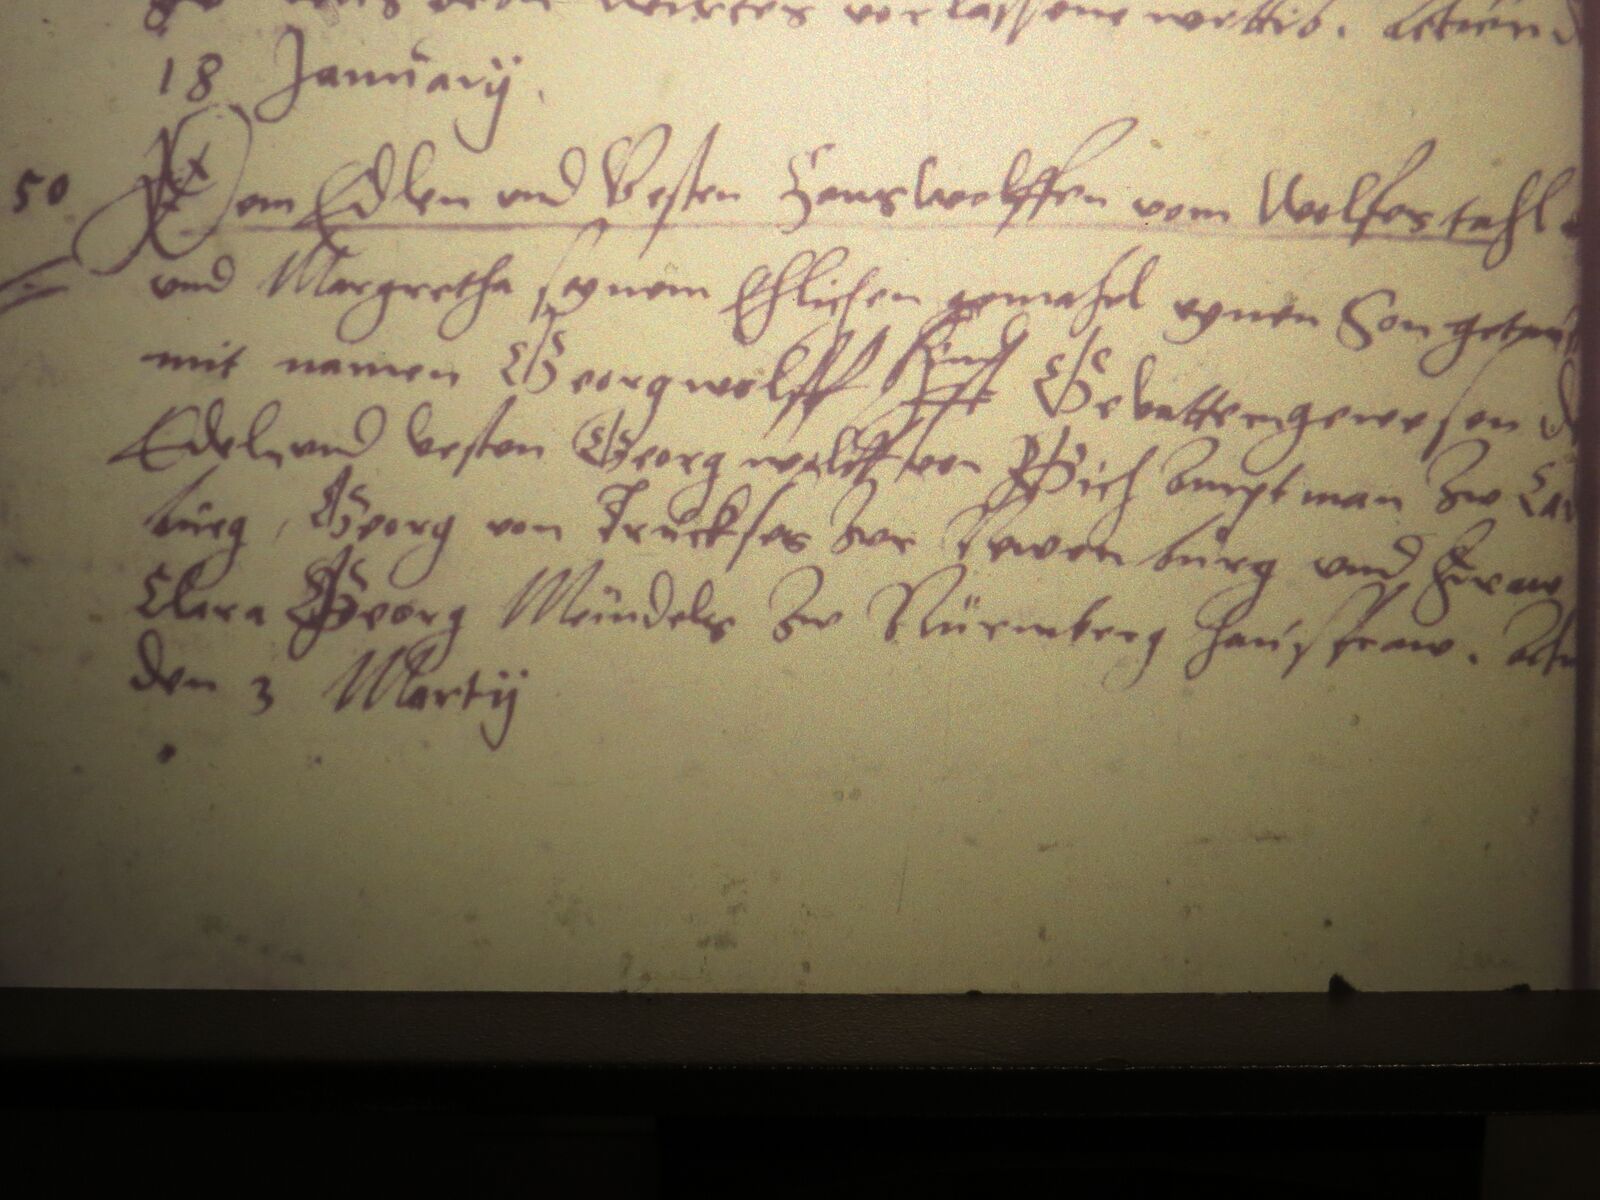 verlassene wittib. Actum
18 January.
50 Dem Edlen und Vesten Hanswolffen vom Wolfestahl
und Margretha seynem Ehlichen gemahel eynen Son getau
mit namen Georgwolff sind Gevattern gewesen d
Edel und vesten Georg wolff von Ampt man zw Lau
burg, Georg von Truckses zw burg und Fraw
Clara Georg Mendels zw Nürmberg hausfraw. Actu
den 3 Martij